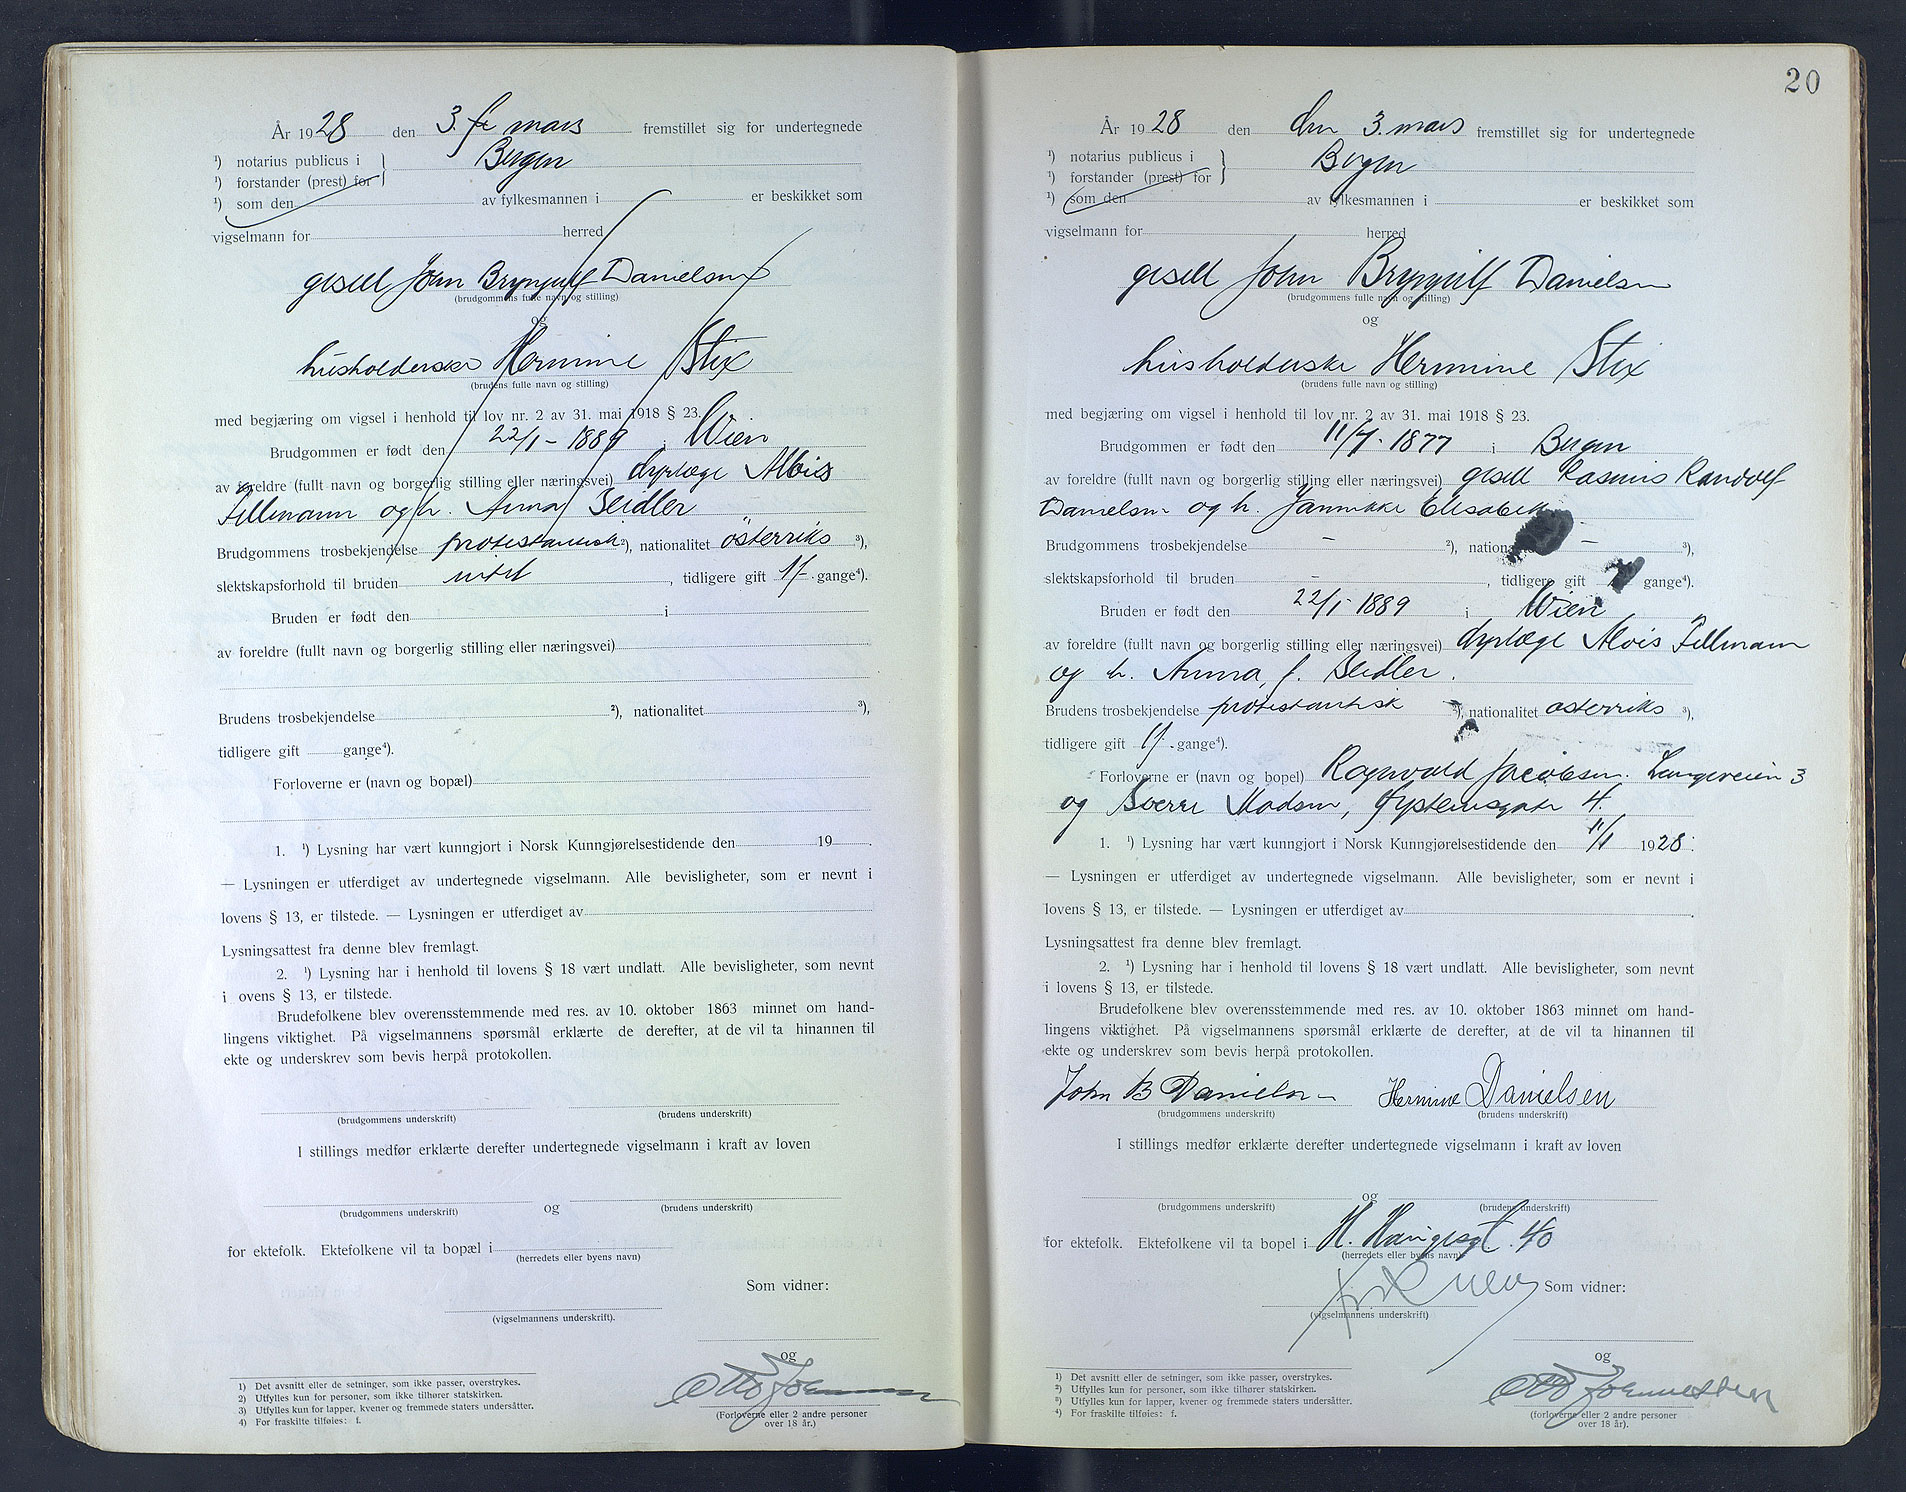 År 1928 den 3. mars fremstillet sig for undertegnede
¹) notarius publicus i } Bergen
¹) forstander (prest) for
¹) som den av fylkesmannen i er beskikket som
vigselmann for herred
gesell John Brynjulf Danielsen
(brudgommens fulle navn og stilling)
og
husholderske Hermine Stix
(brudens fulle navn og stilling)
med begjæring om vigsel i henhold til lov nr. 2 av 31. mai 1918 § 23.
Brudgommen er født den 22/1 - 1889 i Wien
av foreldre (fullt navn og borgerlig stilling eller næringsvei) dyrlæge Alois
Fellmann og h. Anna Seidler
Brudgommens trosbekjendelse protestantisk ²), nationalitet østerriks ³),
slektskapsforhold til bruden intet, tidligere gift 1/-. gange⁴).
Bruden er født den i
av foreldre (fullt navn og borgerlig stilling eller næringsvei)
Brudens trosbekjendelse ²), nationalitet ³),
tidligere gift gange⁴).
Forloverne er (navn og bopæl)
1. ¹) Lysning har vært kunngjort i Norsk Kunngjørelsestidende den 19 .
— Lysningen er utferdiget av undertegnede vigselmann. Alle bevisligheter, som er nevnt i
lovens § 13, er tilstede. — Lysningen er utferdiget av
Lysningsattest fra denne blev fremlagt.
2. ¹) Lysning har i henhold til lovens § 18 vært undlatt. Alle bevisligheter, som nevnt
i ovens § 13, er tilstede.
Brudefolkene blev overensstemmende med res. av 10. oktober 1863 minnet om hand-
lingens viktighet. På vigselmannens spørsmål erklærte de derefter, at de vil ta hinannen til
ekte og underskrev som bevis herpå protokollen.
(brudgommens underskrift) (brudens underskrift)
I stillings medfør erklærte derefter undertegnede vigselmann i kraft av loven
og
(brudgommens underskrift) (brudens underskrift)
for ektefolk. Ektefolkene vil ta bopæl i
(herredets eller byens navn)
Som vidner:
(vigselmannens underskrift).
og
Otto
(Forloverne eller 2 andre personer
over 18 år.)
1) Det avsnitt eller de setninger, som ikke passer, overstrykes.
2) Utfylles kun for personer, som ikke tilhører statskirken.
3) Utfylles kun for lapper, kvener og fremmede staters undersåtter.
4) For fraskilte tilføies: f.
20
År 1928 den den 3. mars fremstillet sig for undertegnede
¹) notarius publicus i } Bergen
¹) forstander (prest) for
¹) som den av fylkesmannen i er beskikket som
vigselmann for herred
gesell John Brynjulf Danielsen
(brudgommens fulle navn og stilling)
og
husholderske Hermine Stix
(brudens fulle navn og stilling)
med begjæring om vigsel i henhold til lov nr. 2 av 31. mai 1918 § 23.
Brudgommen er født den 11/7 - 1877 i Bergen
av foreldre (fullt navn og borgerlig stilling eller næringsvei) gesell Rasmus Randolf
Danielsen og h. Jannikke Elisabeth
Brudgommens trosbekjendelse - ²), nationa - ³),
slektskapsforhold til bruden -, tidligere gift gange⁴).
Bruden er født den 22/1 - 1889 i Wien
av foreldre (fullt navn og borgerlig stilling eller næringsvei) dyrlæge Alois Fellmann
og h. Anna, f. Seidler.
Brudens trosbekjendelse protestantisk ²), nationalitet østerriks ³),
tidligere gift 1/-. gange⁴).
Forloverne er (navn og bopel) Ragnvald Jacobsen. Langeveien 3
og Sverre Madsen, Øystensgate 4.
1. ¹) Lysning har vært kunngjort i Norsk Kunngjørelsestidende den 11/1 1928.
— Lysningen er utferdiget av undertegnede vigselmann. Alle bevisligheter, som er nevnt i
lovens § 13, er tilstede. — Lysningen er utferdiget av .
Lysningsattest fra denne blev fremlagt.
2. ¹) Lysning har i henhold til lovens § 18 vært undlatt. Alle bevisligheter, som nevnt
i lovens § 13, er tilstede.
Brudefolkene blev overensstemmende med res. av 10. oktober 1863 minnet om hand-
lingens viktighet. På vigselmannens spørsmål erklærte de derefter, at de vil ta hinannen til
ekte og underskrev som bevis herpå protokollen.
John B Danielsen Hermine Danielsen
(brudgommens underskrift) (brudens underskrift)
I stillings medfør erklærte derefter undertegnede vigselmann i kraft av loven
og
(brudgommens underskrift) (brudens underskrift)
for ektefolk. Ektefolkene vil ta bopel i H. Haugesgt. 40
(herredets eller byens navn)
Som vidner:
(vigselmannens underskrift)
og
Otto
(forloverne eller 2 andre personer
over 18 år).
¹) Det avsnitt eller de setninger, som ikke passer, overstrykes.
²) Utfylles kun for personer, som ikke tilhører statskirken.
³) Utfylles kun for lapper, kvener og fremmede staters undersåtter.
⁴) For fraskilte tilføies: f.